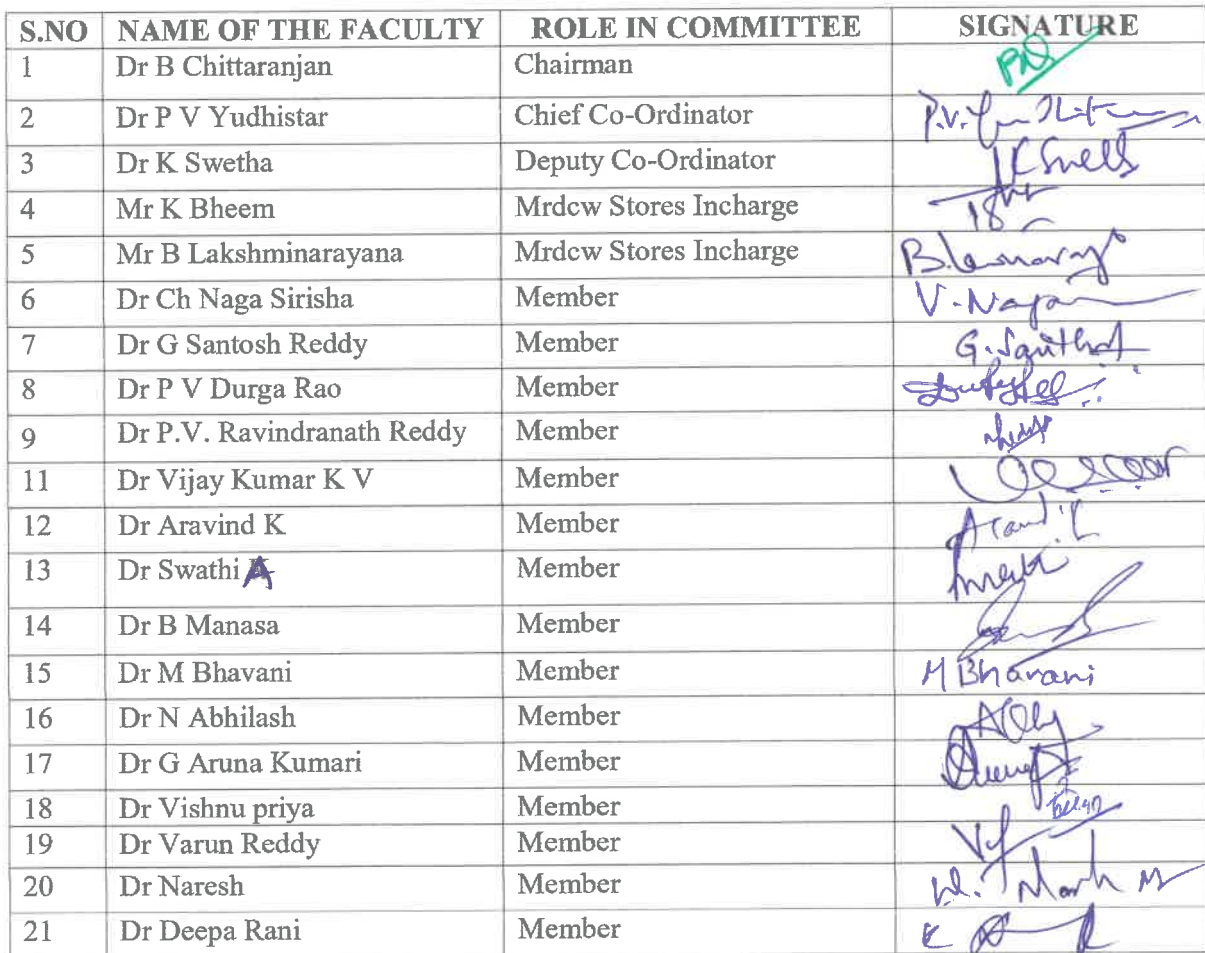 S.NO NAME OF THE FACULTY ROLE IN COMMITTEE SIGNATURE
1 Dr B Chittaranjan Chairman
2 Dr P V Yudhistar Chief Co-Ordinator P.V.
3 Dr K Swetha Deputy Co-Ordinator
4 Mr K Bheem Mrdcw Stores Incharge
5 Mr B Lakshminarayana Mrdcw Stores Incharge
6 Dr Ch Naga Sirisha Member
7 Dr G Santosh Reddy Member
8 Dr P V Durga Rao Member
9 Dr P.V. Ravindranath Reddy Member
11 Dr Vijay Kumar K V Member
12 Dr Aravind K Member
13 Dr Swathi A Member
14 Dr B Manasa Member
15 Dr M Bhavani Member M Bhavani
16 Dr N Abhilash Member
17 Dr G Aruna Kumari Member
18 Dr Vishnu priya Member
19 Dr Varun Reddy Member
20 Dr Naresh Member
21 Dr Deepa Rani Member